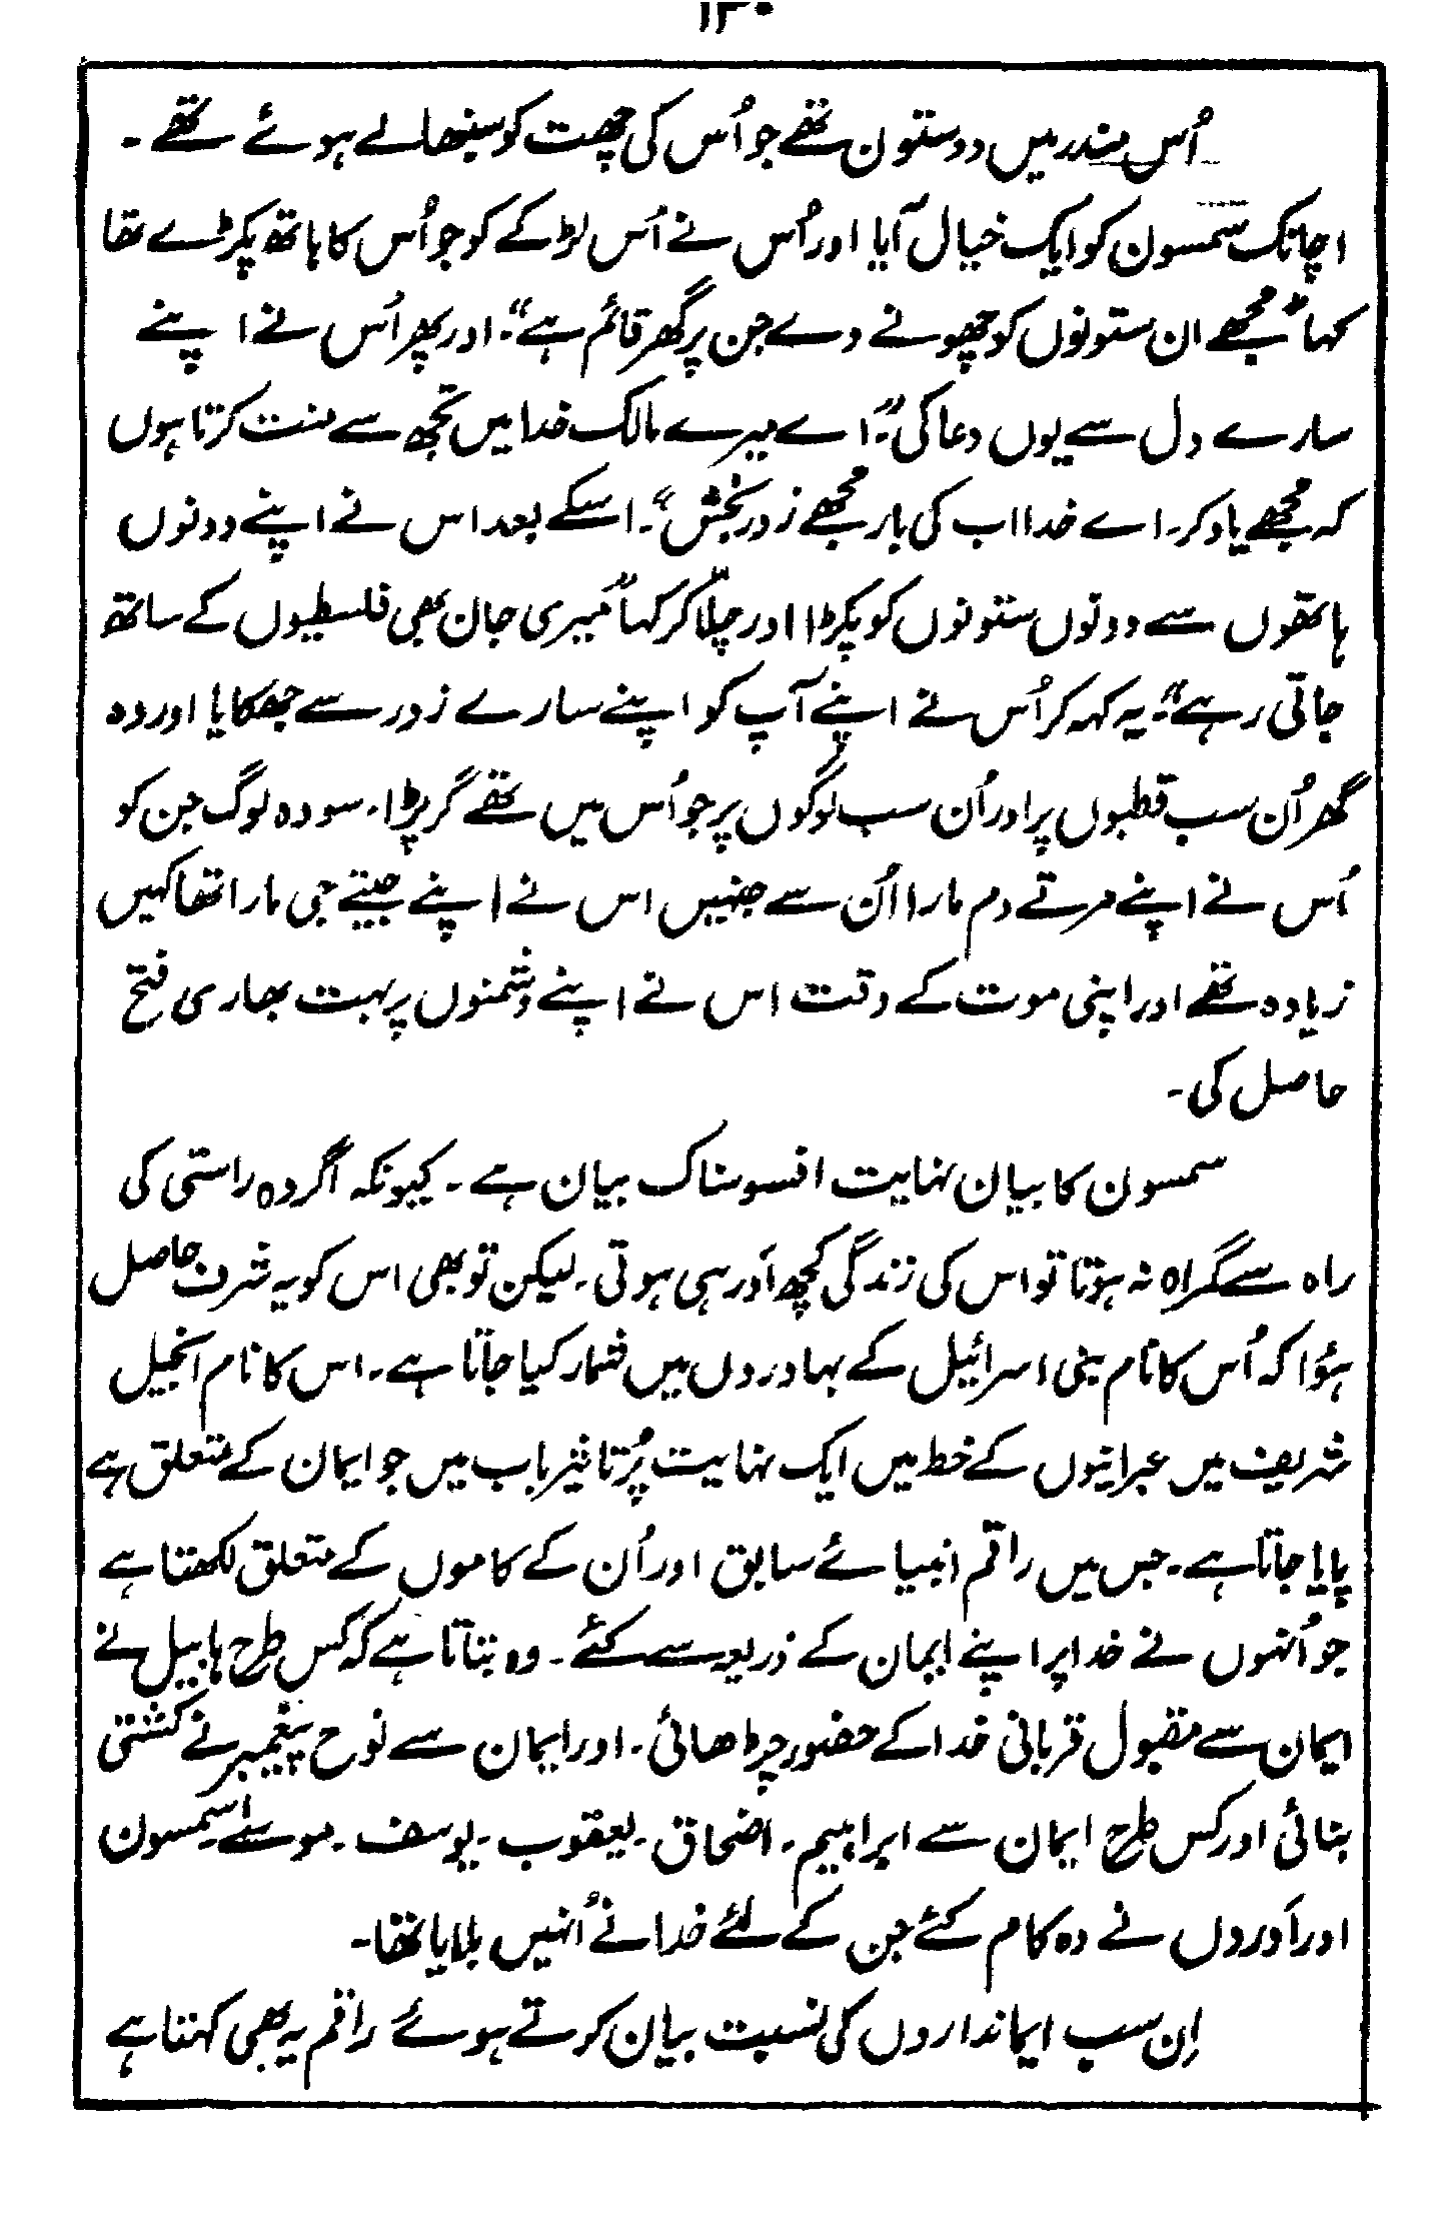 ۱۳۰
اُس مندر میں دوستون تھے جو اُس کی چھت کو سنبھالے ہوئے تھے ۔
اچانک سمسون کو ایک خیال آیا اور اُس نے اُس لڑکے کو جو اُس کا ہاتھ پکڑے تھا
کہا "مجھے ان ستونوں کو چھونے دے جن پر گھر قائم ہے"۔ اور پھر اُس نے اپنے
سارے دل سے یوں دعا کی "۔ اے میرے مالک خدا میں تجھ سے منت کرتا ہوں
کہ مجھے یاد کر۔ اے خدا اب کی بار مجھے زور بخش"۔ اسکے بعد اس نے اپنے دونوں
ہاتھوں سے دونوں ستونوں کو پکڑا اور چلّا کر کہا "میری جان بھی فلسطیوں کے ساتھ
جاتی رہے"۔ یہ کہہ کر اُس نے اپنے آپ کو اپنے سارے زور سے جھکایا اور وہ
گھر اُن سب قطبوں پر اور اُن سب لوگوں پر جو اُس میں تھے گر پڑا۔ سو وہ لوگ جن کو
اُس نے اپنے مرتے دم مارا اُن سے جنہیں اس نے اپنے جیتے جی مارا تھا کہیں
زیادہ تھے اور اپنی موت کے وقت اس نے اپنے دشمنوں پر بہت بھاری فتح
حاصل کی ۔
سمسون کا بیان نہایت افسوسناک بیان ہے ۔ کیونکہ اگر وہ راستی کی
راہ سے گمراہ نہ ہوتا تو اس کی زندگی کچھ اَور ہی ہوتی ۔ لیکن تو بھی اس کو یہ شرف حاصل
ہؤا کہ اُس کا نام بنی اسرائیل کے بہادروں میں شمار کیا جاتا ہے ۔ اس کا نام انجیل
شریف میں عبرانیوں کے خط میں ایک نہایت پُرتاثیر باب میں جو ایمان کے متعلق ہے
پایا جاتا ہے ۔ جس میں راقم انبیائے سابق اور اُن کے کاموں کے متعلق لکھتا ہے
جو اُنہوں نے خدا پر اپنے ایمان کے ذریعہ سے کئے ۔ وہ بتاتا ہے کہ کس طرح ہابیل نے
ایمان سے مقبول قربانی خدا کے حضور چڑھائی ۔ اور ایمان سے نوح پیغمبر نے کشتی
بنائی اور کس طرح ایمان سے ابراہیم ۔ اضحاق ۔ یعقوب ۔ یوسف ۔ موسےٰ سمسون
اور اَوروں نے وہ کام کئے جن کے لئے خدا نے اُنہیں بلایا تھا۔
اِن سب ایمانداروں کی نسبت بیان کرتے ہوئے راقم یہ بھی کہتا ہے